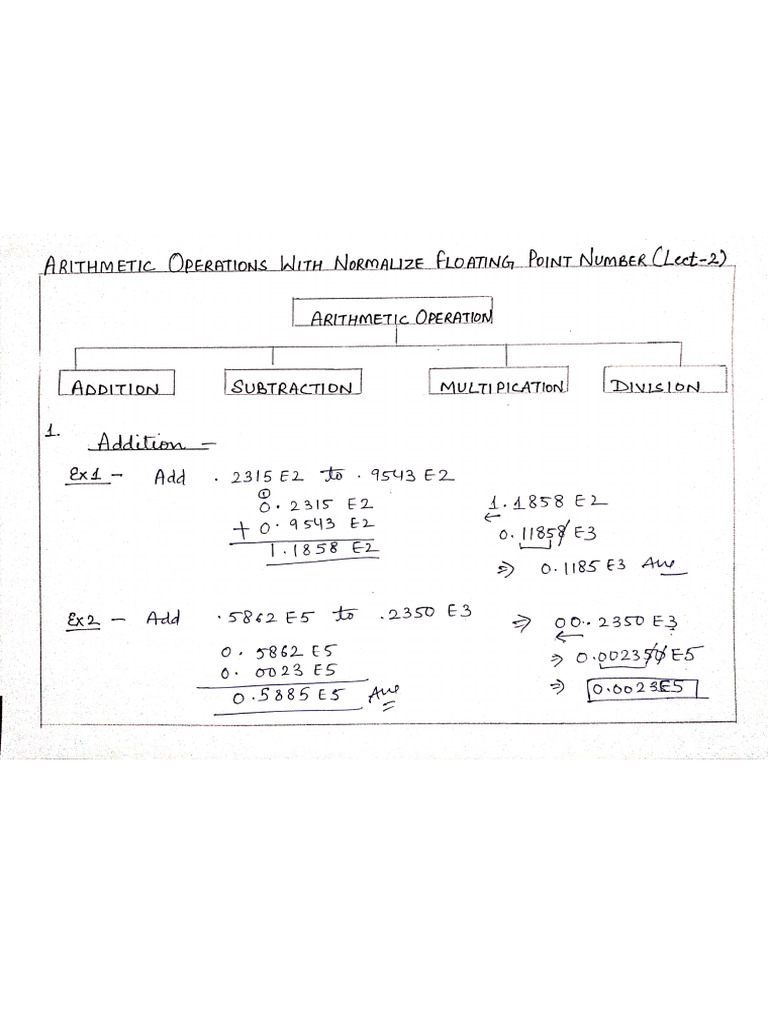 ARITHMETIC OPERATIONS WITH NORMALIZE FLOATING POINT NUMBER (Lect-2)
ARITHMETIC OPERATION
ADDITION SUBTRACTION MULTIPICATION DIVISION
1. Addition –
Ex1 – Add .2315 E2 to .9543 E2
1
0.2315 E2
+ 0.9543 E2
1.1858 E2
1.1858 E2
←
0.11858 E3
⇒ 0.1185 E3 Ans
Ex2 – Add .5862 E5 to .2350 E3
0.5862 E5
0.0023 E5
0.5885 E5 Ans
⇒ 00..2350 E3
←
⇒ 0.002350 E5
⇒ 0.0023E5